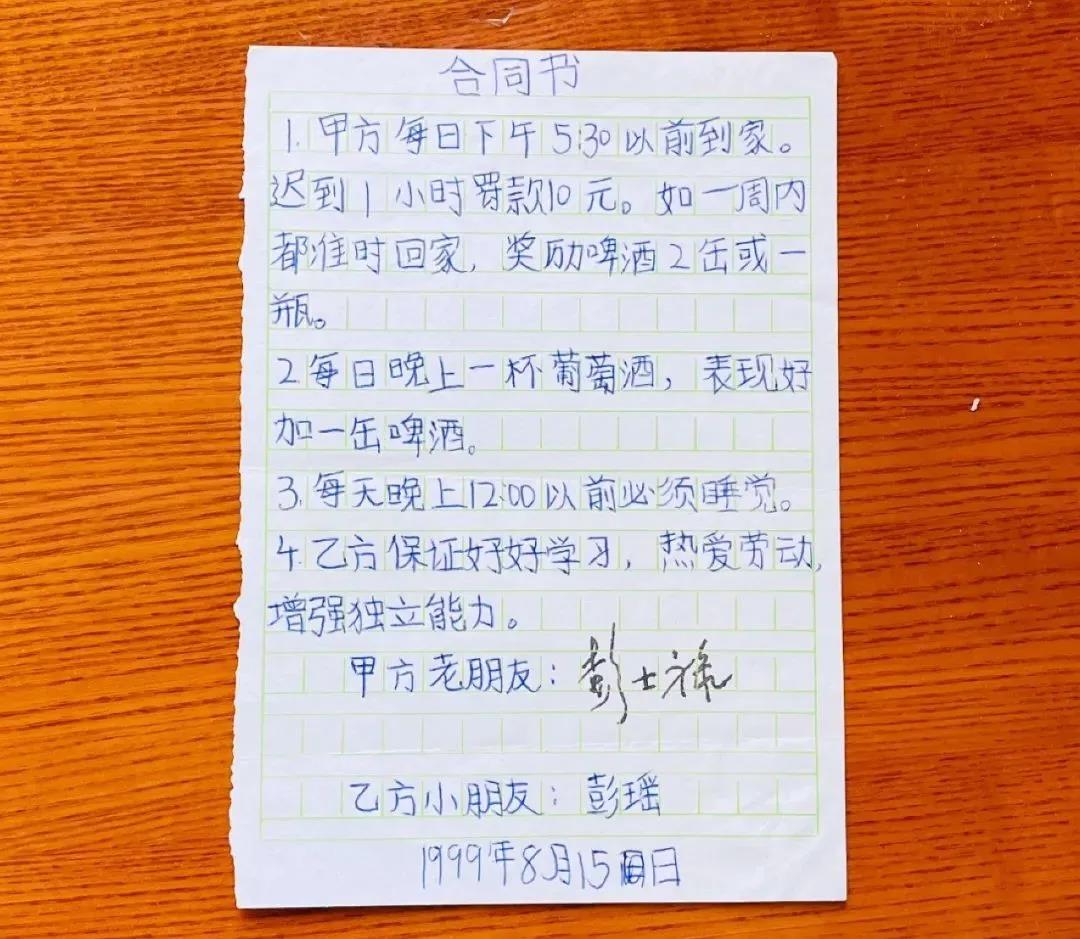 合同书
1.甲方每日下午5:30以前到家。
迟到1小时罚款10元。如一周内
都准时回家,奖励啤酒2缶或一
瓶。
2.每日晚上一杯葡萄酒,表现好
加一缶啤酒。
3.每天晚上12:00以前必须睡觉。
4.乙方保证好好学习,热爱劳动,
增强独立能力。
甲方老朋友:彭士禄
乙方小朋友:彭瑶
1999年8月15日